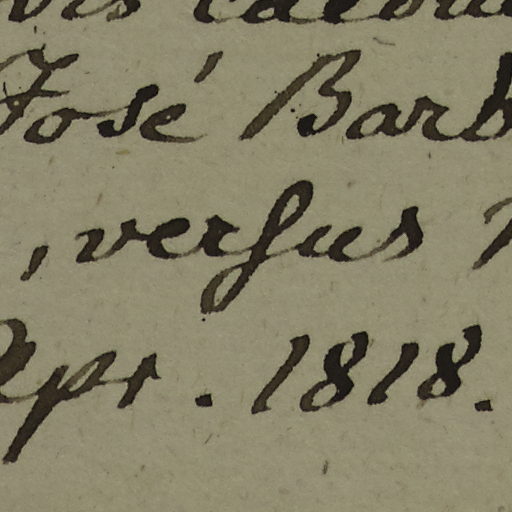 José Barb
, versus
Apr. 1818.